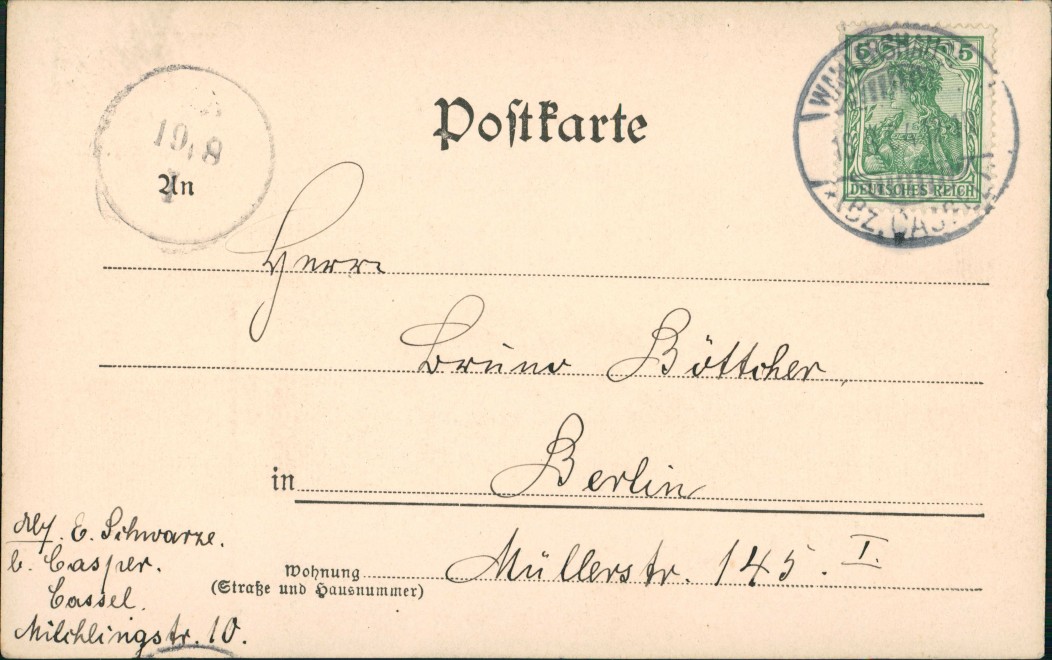 Postkarte
5 5
DEUTSCHES REICH
(Bz. CASSEL)
19. 8
An
Herrn
Bruno Böttcher,
in Berlin
Wohnung
(Straße und Hausnummer)
Müllerstr. 145. I.
Abs. E. Schwarze.
b. Casper.
Cassel.
Milchlingstr. 10.